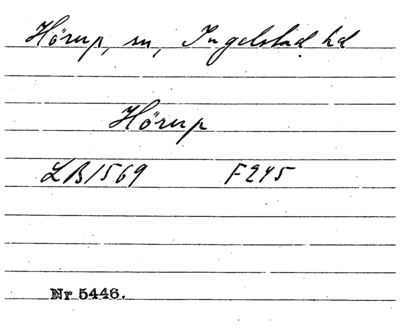 Hörup, sn, Ingelstad hd
Hörup
LB 1569 F245
Nr 5446.